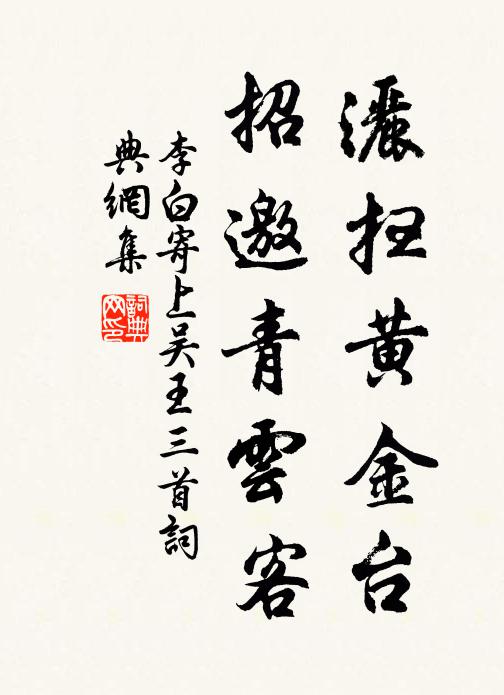 灑扫黄金台
招邀青雲客
李白寄上吴王三首詞
典網集
詞典
网印